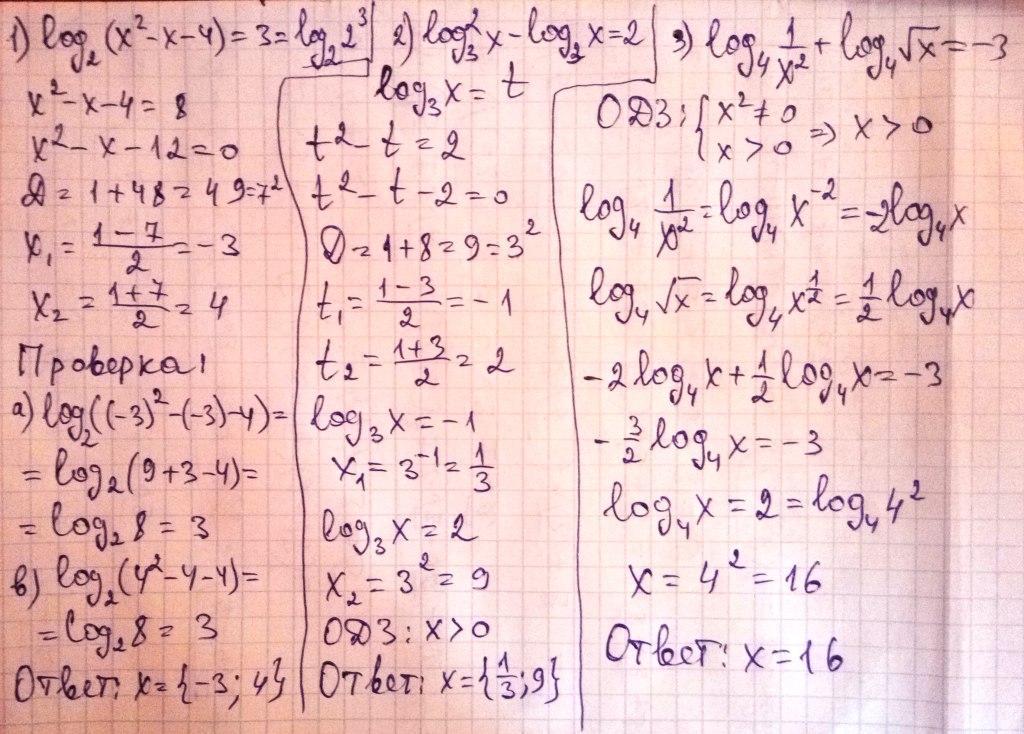 1) log₂(x²-x-4)=3=log₂2³
x²-x-4=8
x²-x-12=0
D=1+48=49=7²
x₁=(1-7)/2=-3
x₂=(1+7)/2=4
Проверка:
а) log₂((-3)²-(-3)-4)=
=log₂(9+3-4)=
=log₂8=3
в) log₂(4²-4-4)=
=log₂8=3
Ответ: x={-3; 4}
2) log₃²x-log₃x=2
log₃x=t
t²-t=2
t²-t-2=0
D=1+8=9=3²
t₁=(1-3)/2=-1
t₂=(1+3)/2=2
log₃x=-1
x₁=3⁻¹=1/3
log₃x=2
x₂=3²=9
ОДЗ: x>0
Ответ: x={1/3; 9}
3) log₄1/x²+log₄√x=-3
ОДЗ: {x²≠0
x>0 ⇒ x>0
log₄1/x²=log₄x⁻²=-2log₄x
log₄√x=log₄x^(1/2)=1/2log₄x
-2log₄x+1/2log₄x=-3
-3/2log₄x=-3
log₄x=2=log₄4²
x=4²=16
Ответ: x=16